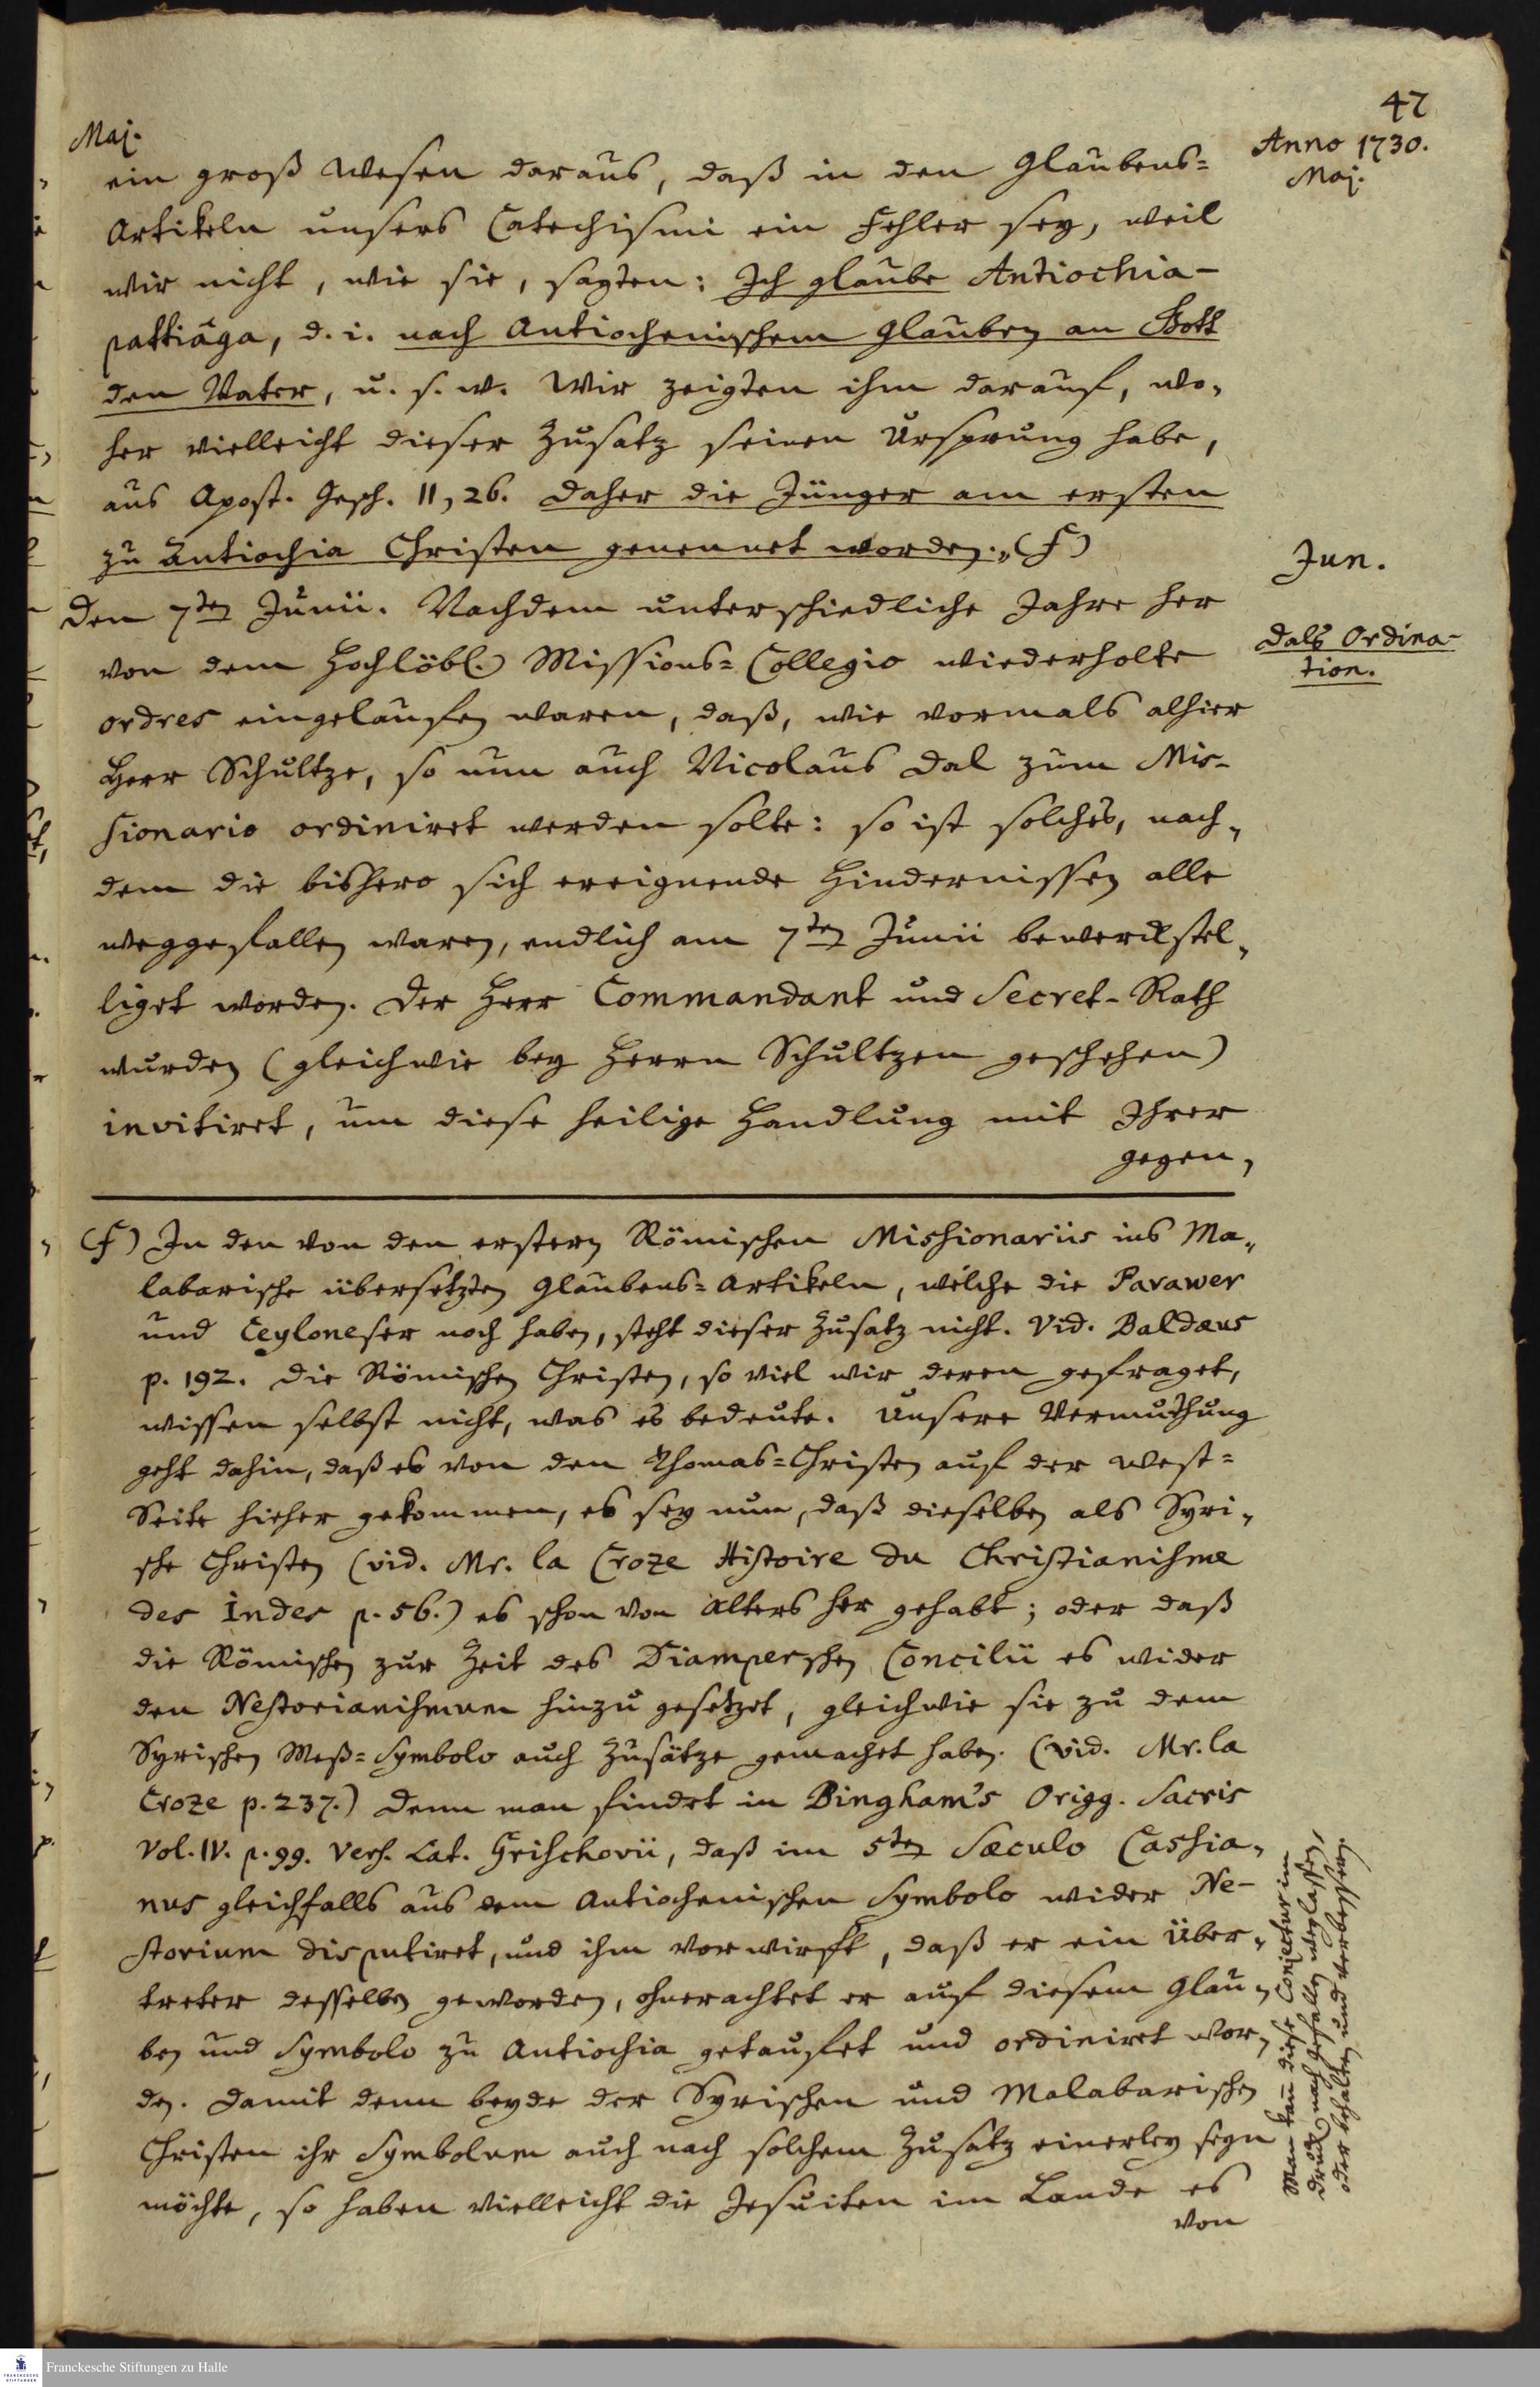 47
Maj.
Anno 1730.
Maj.
ein groß Wesen daraus, daß in den Glaubens=
Artikeln unsers Catechismi ein Fehler sey, weil
wir nicht, wie sie, sagten: Ich glaube Antiochia-
pattiäga, d. i. nach Antiochenischem Glauben an Gott
den Vater, u. s. w. Wir zeigten ihm darauf, wo-
her vielleicht dieser Zusatz seinen Ursprung habe,
aus Apost. Gesch. 11, 26. Daher die Jünger am ersten
zu Antiochia Christen genennet worden.„ (f)
Jun.
Den 7ten Junii. Nachdem unterschiedliche Jahre her
von dem Hochlöbl. Missions=Collegio wiederholte
Dals Ordina-
tion.
ordres eingelaufen waren, daß, wie vormals alhier
Herr Schultze, so nun auch Nicolaus Dal zum Mis-
sionario ordiniret werden solte: so ist solches, nach-
dem die bishero sich ereignende Hindernissen alle
weggefallen waren, endlich am 7ten Junii bewerckstel-
liget worden. Der Herr Commandant und Secret-Rath
wurden (gleichwie bey Herrn Schultzen geschehen)
invitiret, um diese heilige Handlung mit Ihrer
gegen-
(f) In den von den erstern Römischen Missionariis ins Ma-
labarische übersetzten Glaubens=Artikeln, welche die Parawer
und Ceyloneser noch haben, steht dieser Zusatz nicht. Vid. Baldæus
p. 192. Die Römischen Christen, so viel wir deren gefraget,
wissen selbst nicht, was es bedeute. Unsere Vermuthung
geht dahin, daß es von den Thomas=Christen auf der West=
Seite hieher gekommen, es sey nun, daß dieselben als Syri-
sche Christen (vid. Mr. la Croze Histoire du Christianisme
des Indes p. 56.) es schon von Alters her gehabt; oder daß
die Römischen zur Zeit des Diamperschen Concilii es wider
den Nestorianismum hinzu gesetzet, gleichwie sie zu dem
Syrischen Meß=Symbolo auch Zusätze gemachet haben. (vid. Mr. la
Croze p. 237.) Denn man findet in Bingham's Origg. Sacris
Vol. IV. p. 99. Vers. Lat. Grischovii, daß im 5ten Sæculo Cassia-
nus gleichfalls aus dem Antiochenischen Symbolo wider Ne-
storium disputiret, und ihm vorwirft, daß er ein Über-
treter desselben geworden, ohnerachtet er auf diesem Glau-
ben und Symbolo zu Antiochia getauffet und ordiniret wor-
den. Damit denn beyde der Syrischen und Malabarischen
Christen ihr Symbolum auch nach solchem Zusatz einerley seyn
möchte, so haben vielleicht die Jesuiten im Lande es
von
Man kan diese Conjectur im
Druck nach Gefallen weglassen,
oder behalten und verbessern.
Franckesche Stiftungen zu Halle